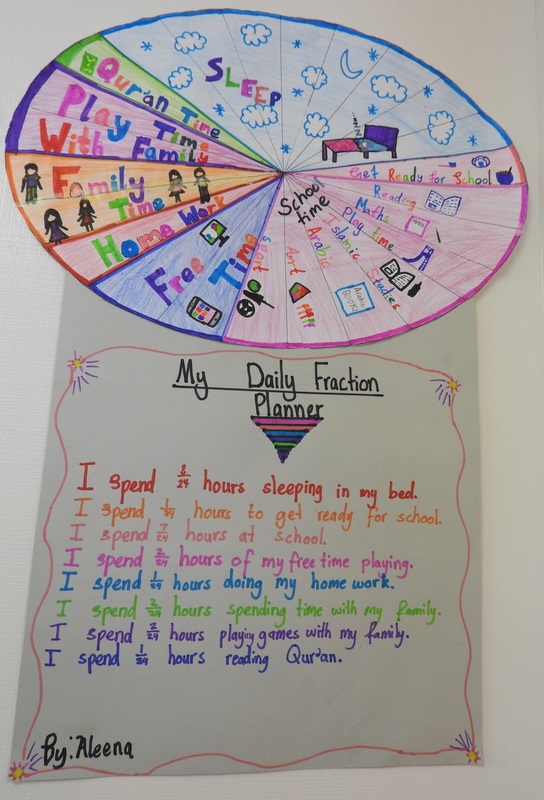 SLEEP
Qur'an Time
Play Time
With Family
Family
Time
Home Work
Free Time
Get Ready for School
School
time
Reading
Maths
Play time
Islamic Studies
Arabic
Art
Sport
Arabic
BOOKS
My Daily Fraction
Planner
I spend 8/24 hours sleeping in my bed.
I spend 1/24 hours to get ready for school.
I spend 7/24 hours at school.
I spend 2/24 hours of my free time playing.
I spend 1/24 hours doing my home work.
I spend 2/24 hours spending time with my family.
I spend 2/24 hours playing games with my family.
I spend 1/24 hours reading Qur'an.
By: Aleena